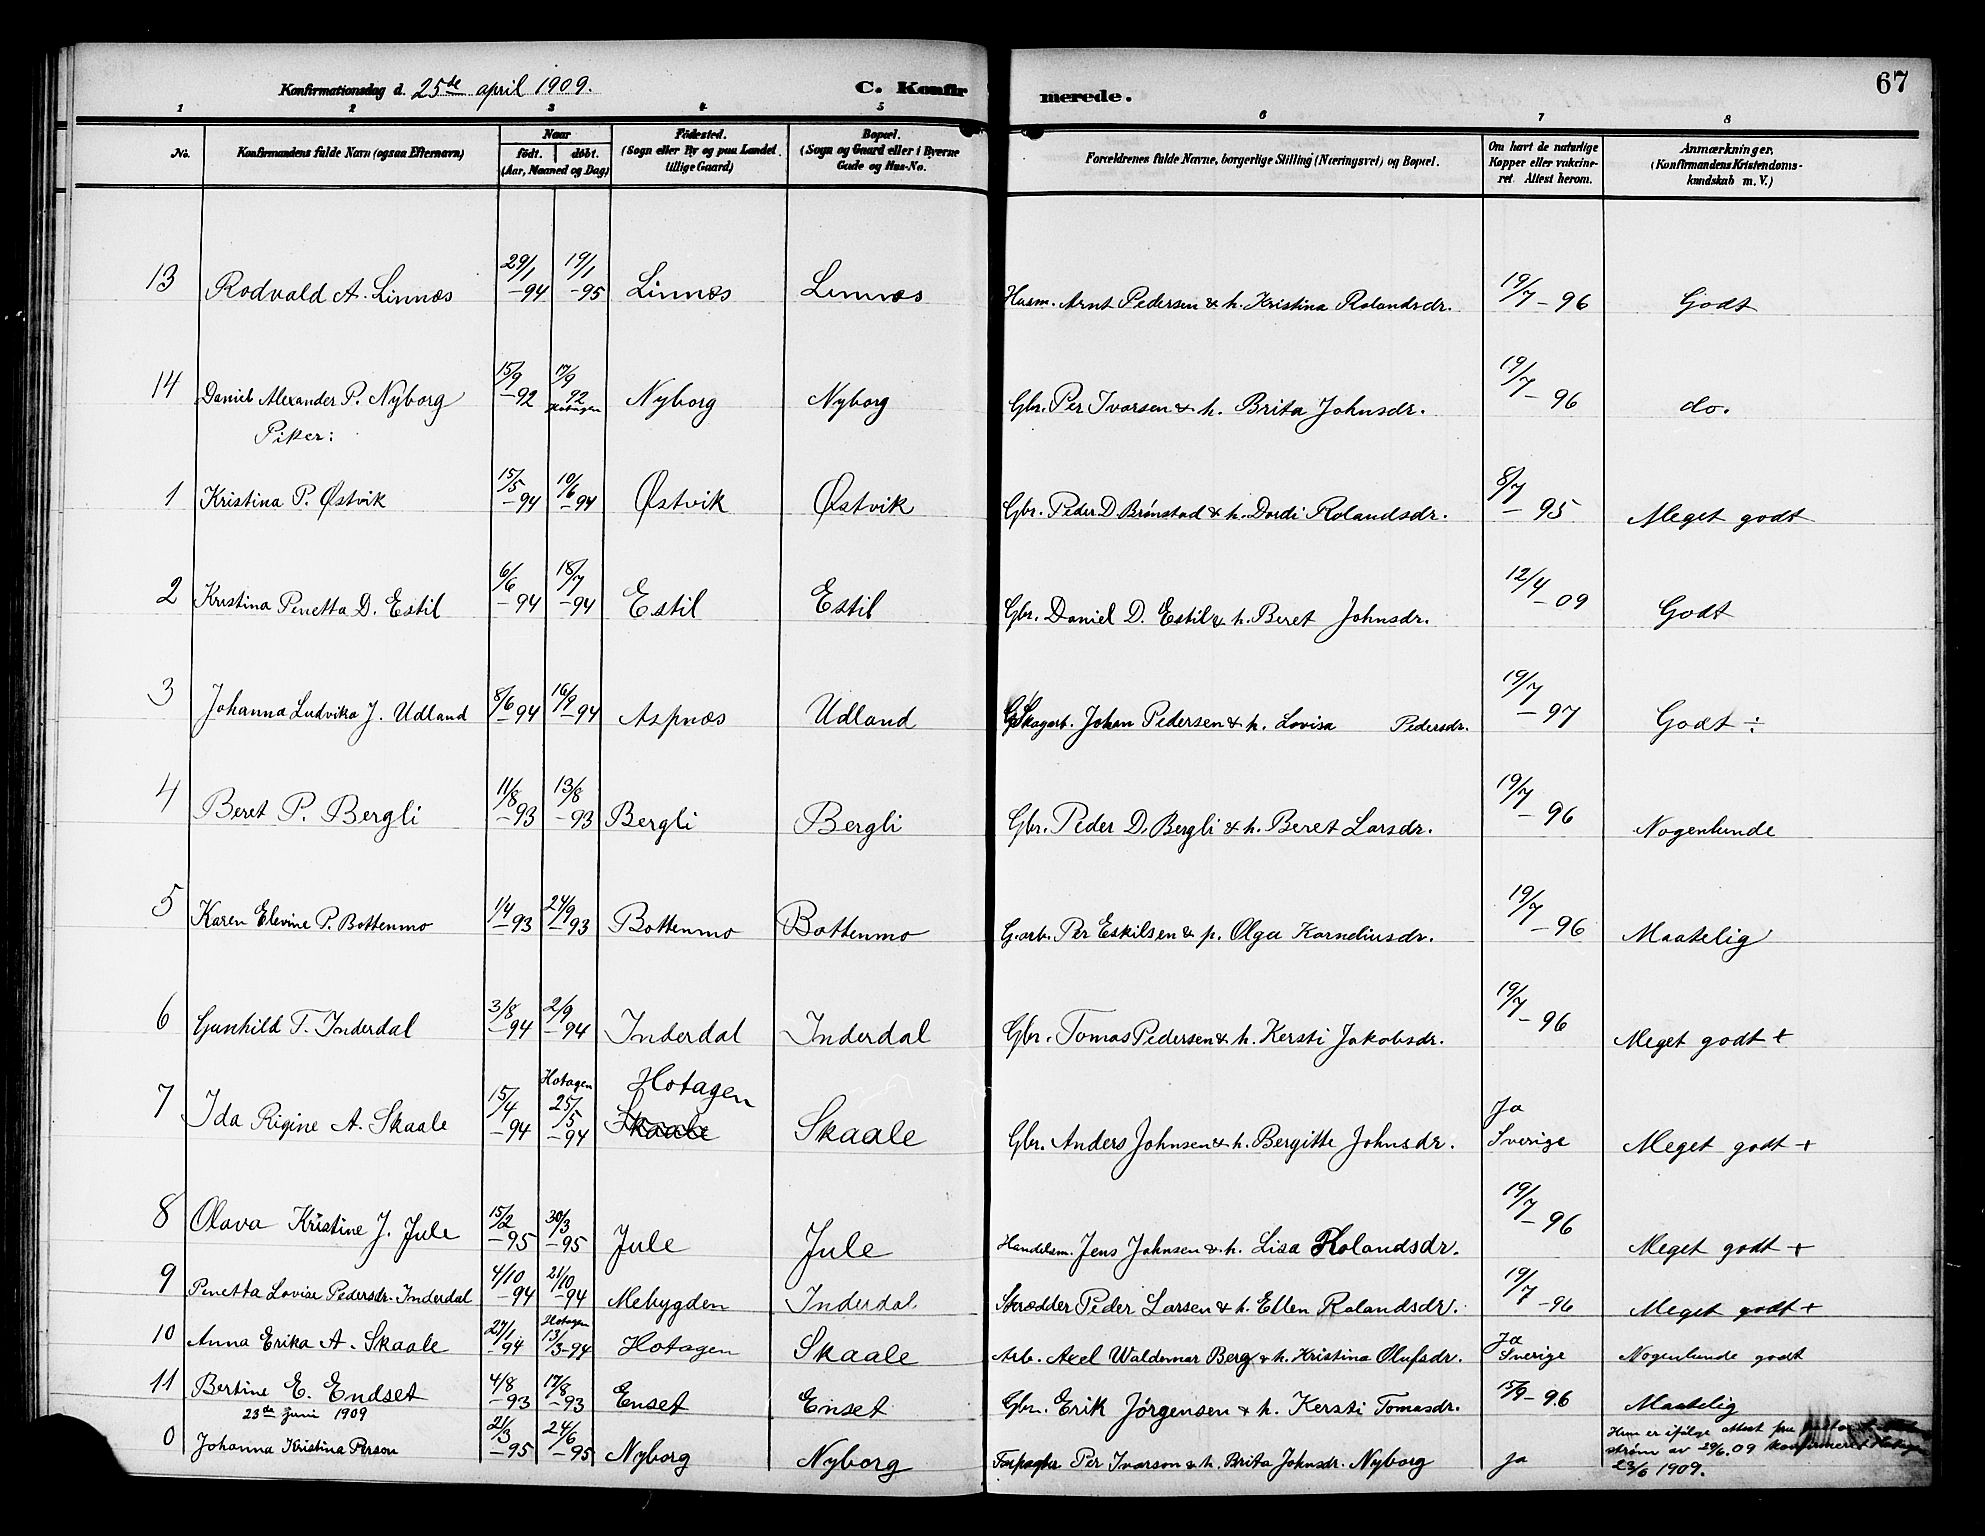 67
Konfirmationsdag d. 25de april 1909. C. Konfirmerede.
1 2 3 4 5 6 7 8
No. Konfirmandens fulde Navn (ogsaa Efternavn) Naar født. døbt. (Aar, Maaned og Dag) Fødested. (Sogn eller By og paa Landet tillige Gaard) Bopæl. (Sogn og Gaard eller i Byerne Gade og Hus-No. Forældrenes fulde Navne, borgerlige Stilling (Næringsvei) og Bopæl. Om havt de naturlige Kopper eller vakcineret. Attest herom. Anmærkninger. (Konfirmandens Kristendomskundskab m. V.)
13 Rodvald A. Linnæs 29/1 -94 19/1 -95 Linnæs Linnæs Husm. Arnt Pedersen & h. Kristina Rolandsdr. 19/7 -96 Godt
14 Daniel Alexander P. Nyborg 15/9 -92 17/9 92 Hotagen Nyborg Nyborg Gbr. Per Ivarsen & h. Brita Johnsdr. 19/7 -96 do.
Piker:
1 Kristina P. Østvik 15/5 -94 10/6 -94 Østvik Østvik Gbr. Peder D. Brønstad & h. Dordi Rolandsdr. 8/7 -95 Meget godt
2 Kristina Penetta D. Estil 6/6 -94 18/7 -94 Estil Estil Gbr. Daniel D. Estil & h. Beret Johnsdr. 12/4 -09 Godt
3 Johanna Ludvika J. Udland 8/6 -94 16/9 -94 Aspnæs Udland Skogarb. Johan Pedersen & h. Lovisa Pedersdr. 19/7 -97 Godt ÷
4 Beret P. Bergli 11/8 -93 13/8 -93 Bergli Bergli Gbr. Peder D. Bergli & h. Beret Larsdr. 19/7 -96 Nogenlunde
5 Karen Elevine P. Bottenmo 1/4 -93 24/9 -93 Bottenmo Bottenmo G.arb. Per Eskilsen & p. Olga Korneliusdr. 19/7 -96 Maatelig
6 Gunhild T. Inderdal 3/8 -94 2/9 -94 Inderdal Inderdal Gbr. Tomas Pedersen & h. Kersti Jakobsdr. 19/7 -96 Meget godt +
7 Ida Rigine A. Skaale 15/4 -94 Hotagen 25/5 -94 Hotagen Skaale Skaale Gbr. Anders Johnsen & h. Bergitte Johnsdr. Ja Sverige Meget godt +
8 Olava Kristine J. Jule 15/2 -95 30/3 -95 Jule Jule Handelsm. Jens Johnsen & h. Lisa Rolandsdr. 19/7 -96 Meget godt +
9 Penetta Lovise Pedersdr. Inderdal 4/10 -94 21/10 -94 Mebygden Inderdal Skrædder Peder Larsen & h. Ellen Rolandsdr. 19/7 -96 Meget godt +
10 Anna Erika A. Skaale 27/1 94 Hotagen 13/3 -94 Hotagen Skaale Arb. Axel Waldemar Berg & h. Kristina Olufsdr. Ja Sverige Nogenlunde godt
11 Bertine E. Endset 4/8 -93 17/8 -93 Enset Enset Gbr. Erik Jørgensen & h. Kersti Tomasdr. 15/9 -96 Maatelig
23de juni 1909
0 Johanna Kristina Person 21/3 -95 24/6 -95 Nyborg Nyborg Forpagter Per Ivarson & h. Brita Johnsdr. Nyborg Ja Hun er ifølge attest fra pastor strøm av 29/6.09 konfirmeret Hotagen 23/6 1909.